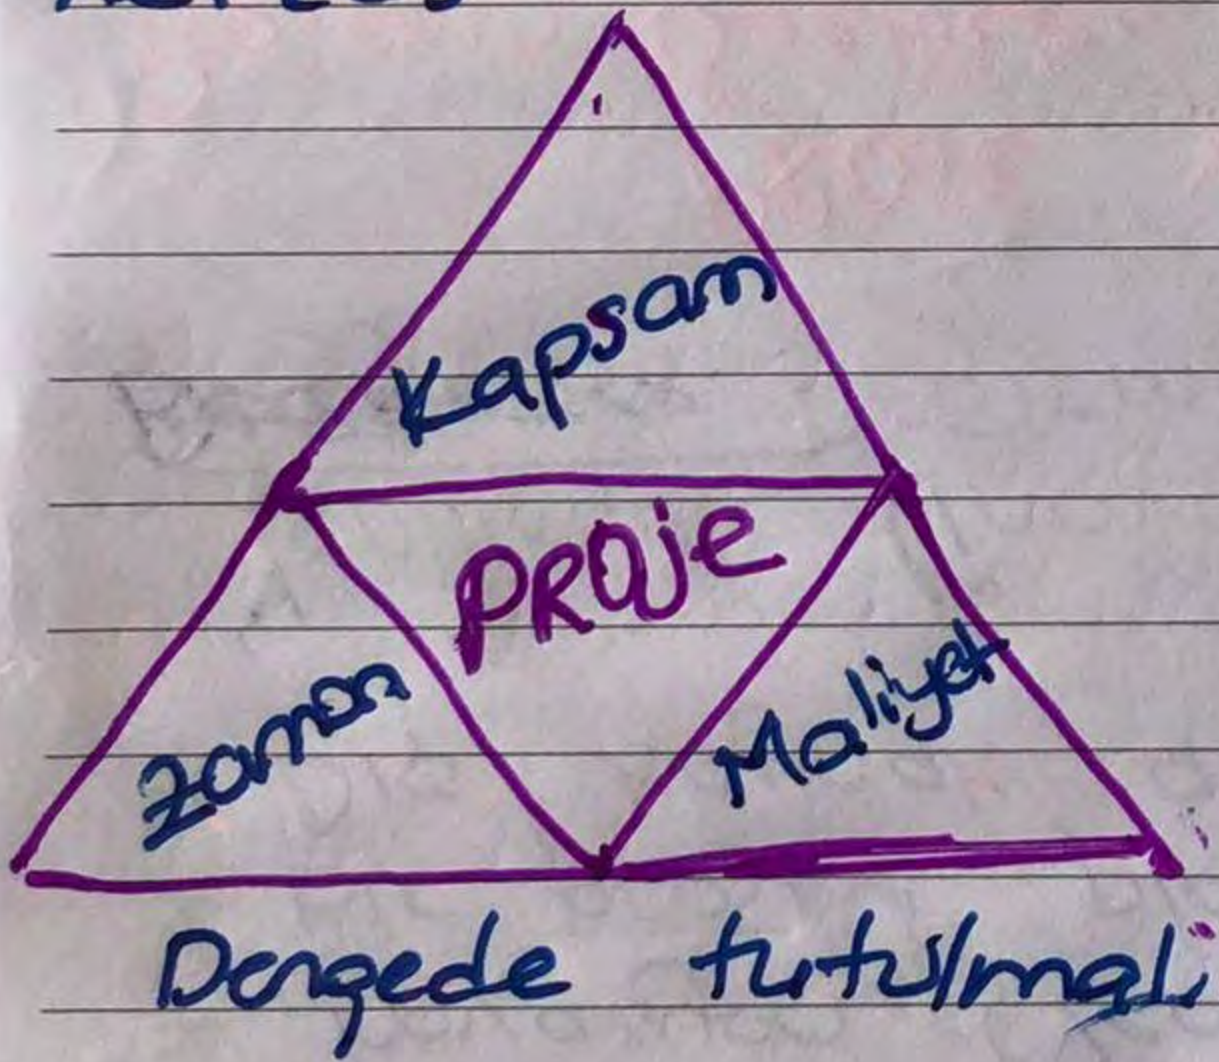 Kapsam
PROje
Zaman
Maliyet
Dengede tutulmalı